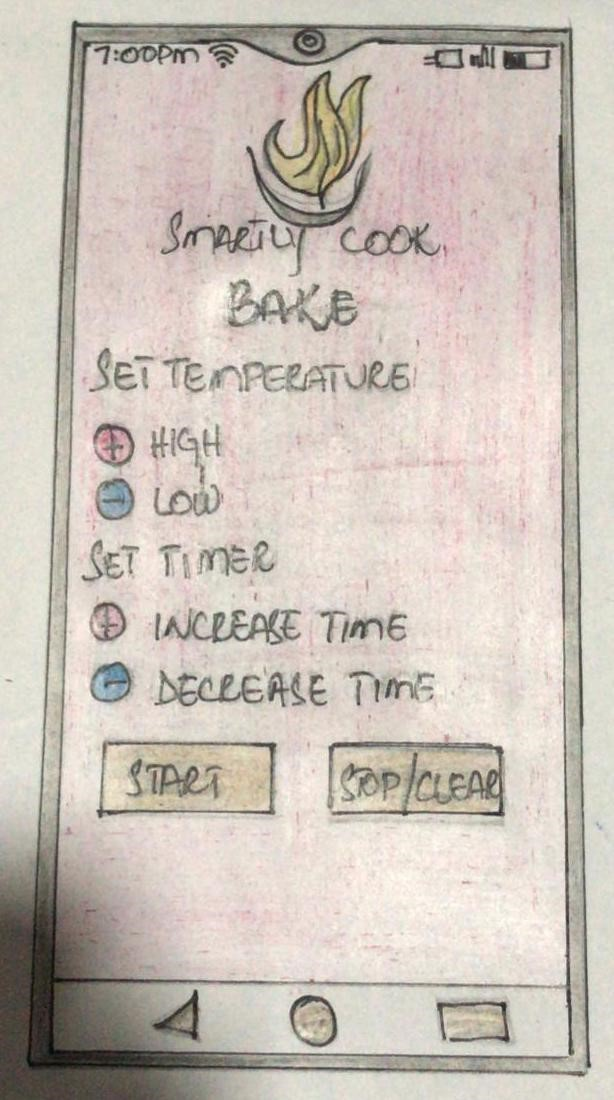 7:00PM
SMARTLY COOK
BAKE
SET TEMPERATURE
+ HIGH
- LOW
SET TIMER
+ INCREASE TIME
- DECREASE TIME
START STOP/CLEAR